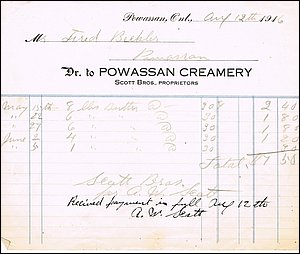 Powassan, Ont. Aug 12th 1916
Mr Fred Beebler
Powassan
Dr. to POWASSAN CREAMERY
SCOTT BROS., PROPRIETORS
May 15th 8 lbs Butter @ 30 2 40
" 22 6 " " @ 30 1 80
27 6 " " @ 30 1 80
June 2 4 " " @ 30 1
" 5 1 " " 30
Total 7
Scott Bros
per A. W. Scott
Received payment in full Aug 12th
A. W. Scott